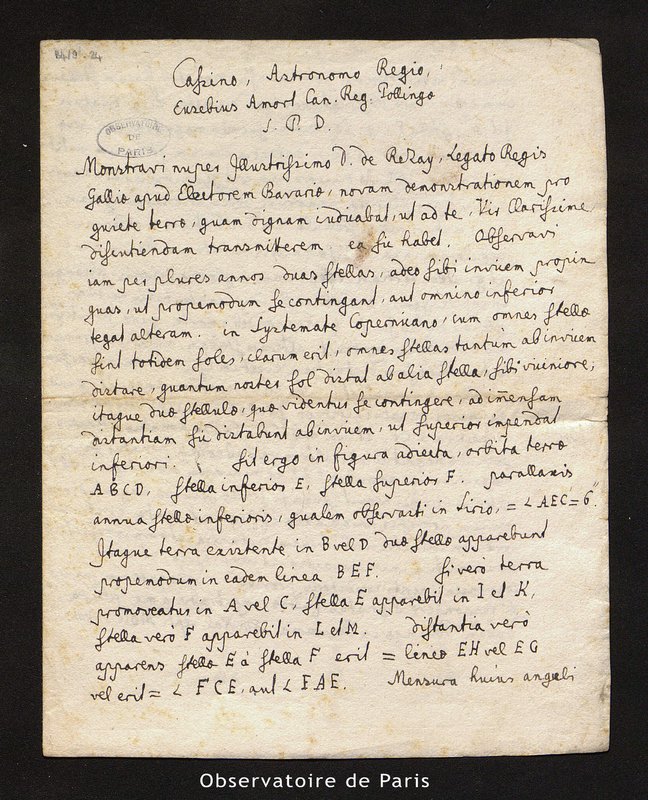 Cassino, Astronomo Regio,
Eusebius Amort Can. Reg. Pollingæ
S. P. D.
OBSERVATOIRE
DE
PARIS
Monstravi nuper Illustrissimo D. de ReZay, Legato Regis
Galliæ apud Electorem Bavariæ, novam demonstrationem pro
quiete terræ, quam dignam iudicabat, ut ad te, Vir Clarissime,
discutiendam transmitterem. ea sic habet. Observavi
iam per plures annos duas stellas, adeo sibi invicem propin
quas, ut propemodum se contingant, aut omnino inferior
tegat alteram. in Systemate Copernicano, cum omnes stellæ
sint totidem soles, clarum erit, omnes stellas tantum ab invicem
distare, quantum noster sol distat ab alia stella, sibi viciniore;
itaque duæ stellulæ, quæ videntur se contingere, ad im̄ensam
distantiam sic distabunt ab invicem, ut superior impendat
inferiori. Sit ergo in figura adiecta, orbita terræ
ABCD, stella inferior E, stella superior F. parallaxis
annua stellæ inferioris, qualem observasti in Sirio, = ∠ AEC = 6".
Itaque terra existente in B vel D duæ stellæ apparebunt
propemodum in eadem linea BEF. Si verò terra
promoveatur in A vel C, stella E apparebit in I et K,
stella verò F apparebit in L et M. distantia verò
apparens stellæ E à stella F erit = lineæ EH vel EG
vel erit = ∠ FCE, aut ∠ FAE. Mensura huius anguli
Observatoire de Paris